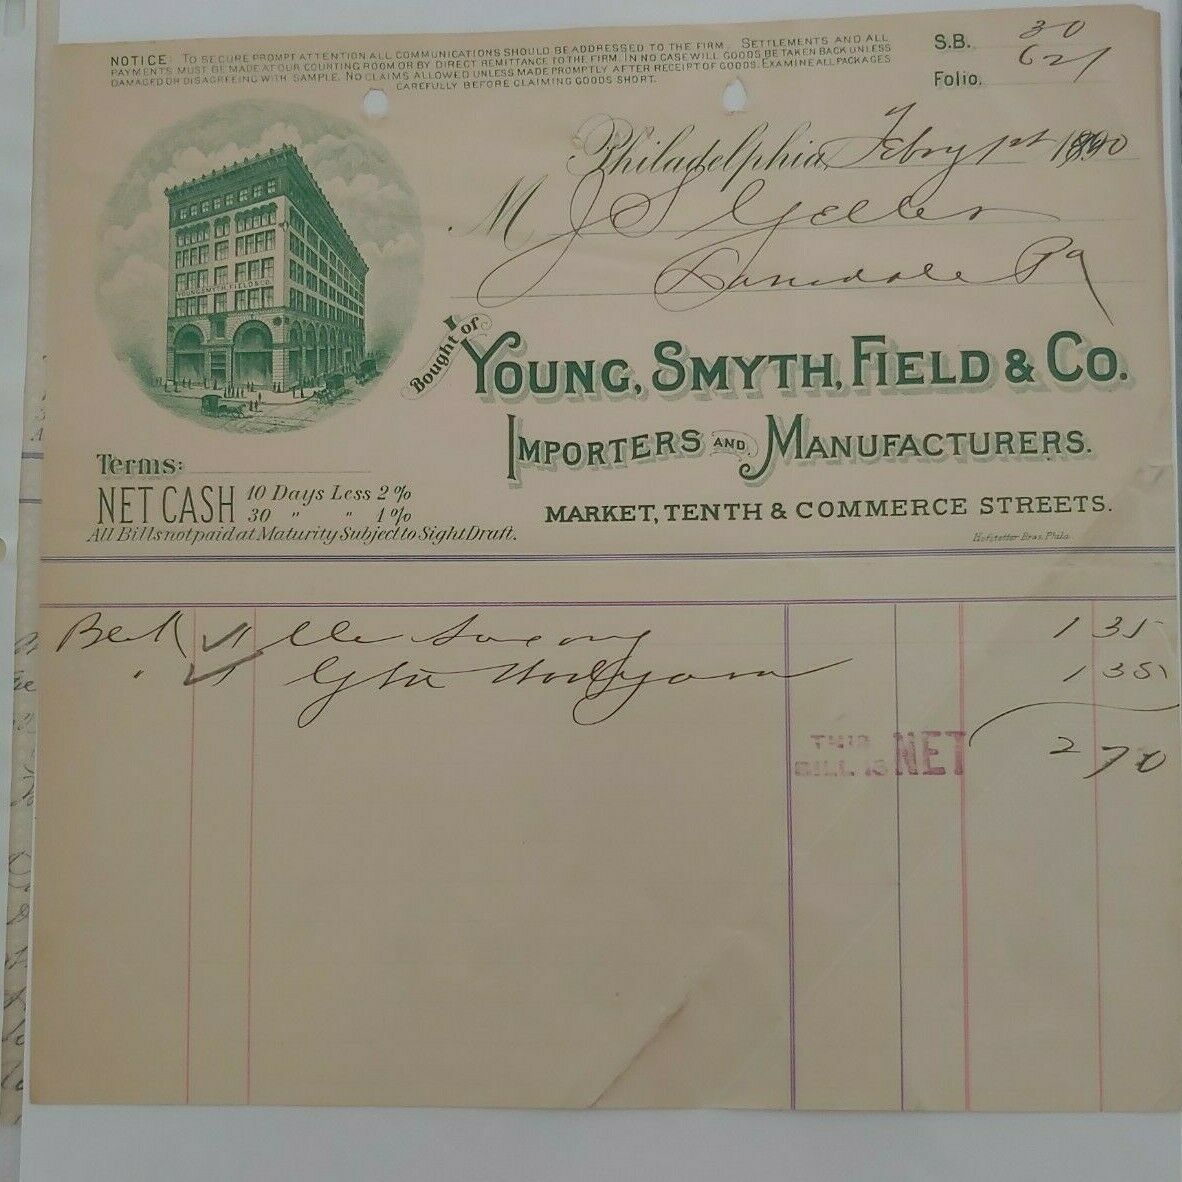 NOTICE: TO SECURE PROMPT ATTENTION ALL COMMUNICATIONS SHOULD BE ADDRESSED TO THE FIRM. SETTLEMENTS AND ALL
PAYMENTS MUST BE MADE AT OUR COUNTING ROOM OR BY DIRECT REMITTANCE TO THE FIRM. IN NO CASE WILL GOODS BE TAKEN BACK UNLESS
DAMAGED OR DISAGREEING WITH SAMPLE. NO CLAIMS ALLOWED UNLESS MADE PROMPTLY AFTER RECEIPT OF GOODS. EXAMINE ALL PACKAGES
CAREFULLY BEFORE CLAIMING GOODS SHORT.
S.B. 30
Folio. 621
Philadelphia, Febry 1st 1890
M J S Geller
Lansdale Pa
YOUNG, SMYTH, FIELD & CO.
Bought of
YOUNG, SMYTH, FIELD & CO.
IMPORTERS AND MANUFACTURERS.
MARKET, TENTH & COMMERCE STREETS.
Hofstetter Bros. Phila.
Terms:
NET CASH 10 Days Less 2%
30 " " 1%
All Bills not paid at Maturity Subject to Sight Draft.
Saxony 1 35
1 35
THIS BILL IS NET
2 70